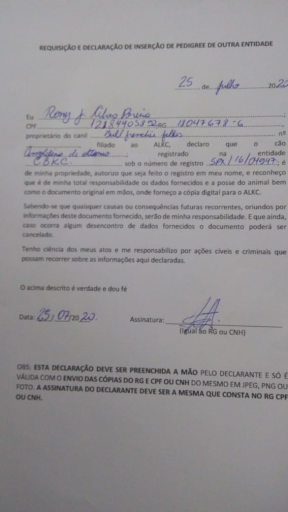 REQUISIÇÃO E DECLARAÇÃO DE INSERÇÃO DE PEDIGREE DE OUTRA ENTIDADE
25 de Julho 20
Eu
CPF
proprietário do canil nº
filiado ao ALKC, declaro que o cão
registrado na entidade
CBKC. sob o número de registro é
de minha propriedade, autorizo que seja feito o registro em meu nome, e reconheço
que é de minha total responsabilidade os dados fornecidos e a posse do animal bem
como o documento original em mãos, onde forneço a cópia digital para o ALKC.
Sabendo-se que quaisquer causas ou consequências futuras recorrentes, oriundos por
informações deste documento fornecido, serão de minha responsabilidade. E que ainda,
caso ocorra algum desencontro de dados fornecidos o documento poderá ser
cancelado.
Tenho ciência dos meus atos e me responsabilizo por ações cíveis e criminais que
possam recorrer sobre as informações aqui declaradas.
O acima descrito é verdade e dou fé
Data: 25/07/20 Assinatura:
(Igual ao RG ou CNH)
OBS: ESTA DECLARAÇÃO DEVE SER PREENCHIDA A MÃO PELO DECLARANTE E SÓ É
VÁLIDA COM O ENVIO DAS CÓPIAS DO RG E CPF OU CNH DO MESMO EM JPEG, PNG OU
FOTO. A ASSINATURA DO DECLARANTE DEVE SER A MESMA QUE CONSTA NO RG CPF
OU CNH.